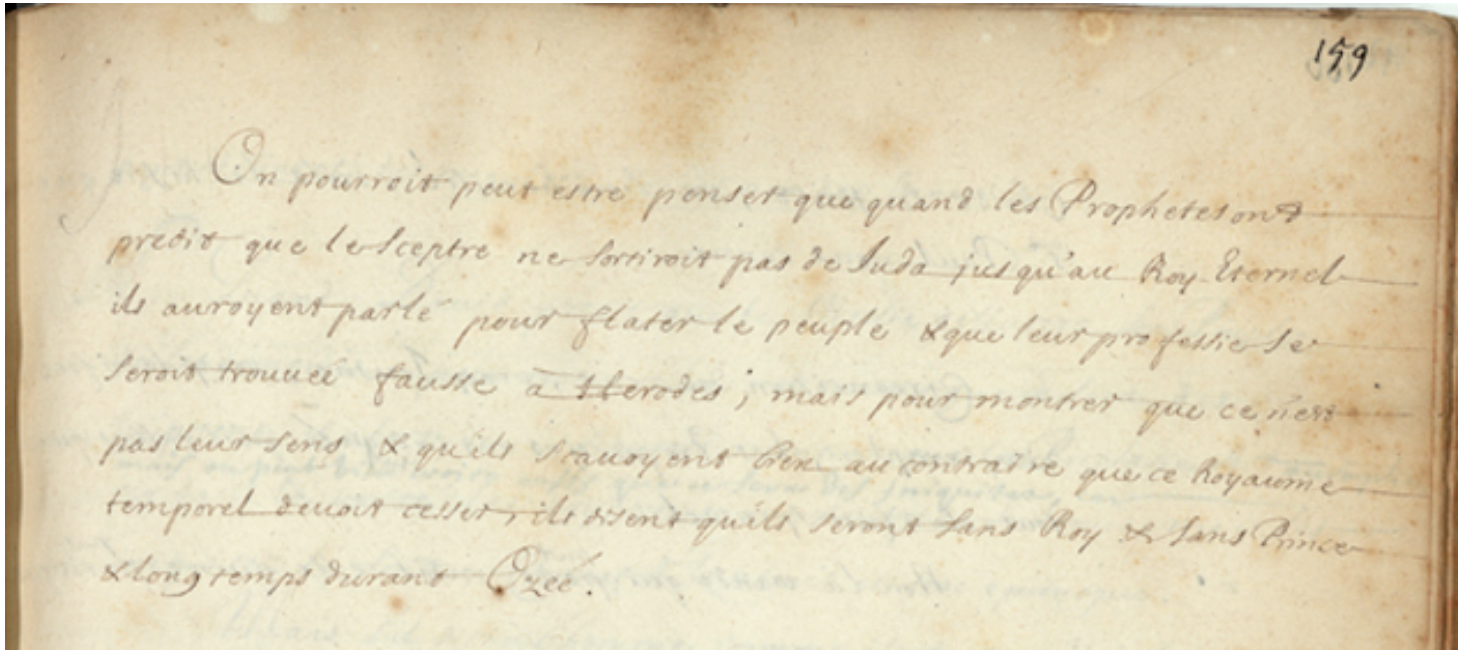 159
On pourroit peut estre penser que quand les Prophetes ont
predit que le Sceptre ne sortiroit pas de Juda jusqu'au Roy Eternel
ils auroyent parlé pour flater le peuple & que leur profettie se
seroit trouuée fausse à Herodes ; mais pour montrer que ce n'est
pas leur sens & quils scauoyent bien au contraire que ce Royaume
temporel deuoit cesser, ils disent quils seront sans Roy & sans Prince
& long temps durant Ozeé.